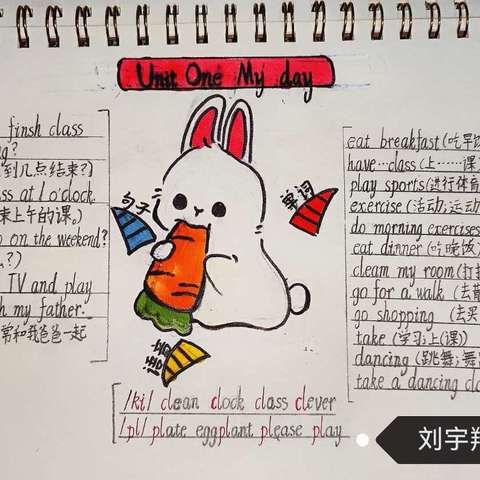 Unit One My day
finsh class
g?
到几点结束?)
ss at 1 o'clock.
束上午的课。)
o on the weekend?
?)
TV and play
h my father.
常和我爸爸一起
句子
单词
语音
eat breakfast(吃早饭
have…class(上……课)
play sports(进行体育
exercise(活动;运动
do morning exercises
eat dinner(吃晚饭)
cleam my room(打扫
go for a walk (去散
go shopping (去买
take(学习;上(课))
dancing(跳舞;舞
take a dancing cla
/kl/ clean clock class clever
/pl/ plate eggplant please play
刘宇翔